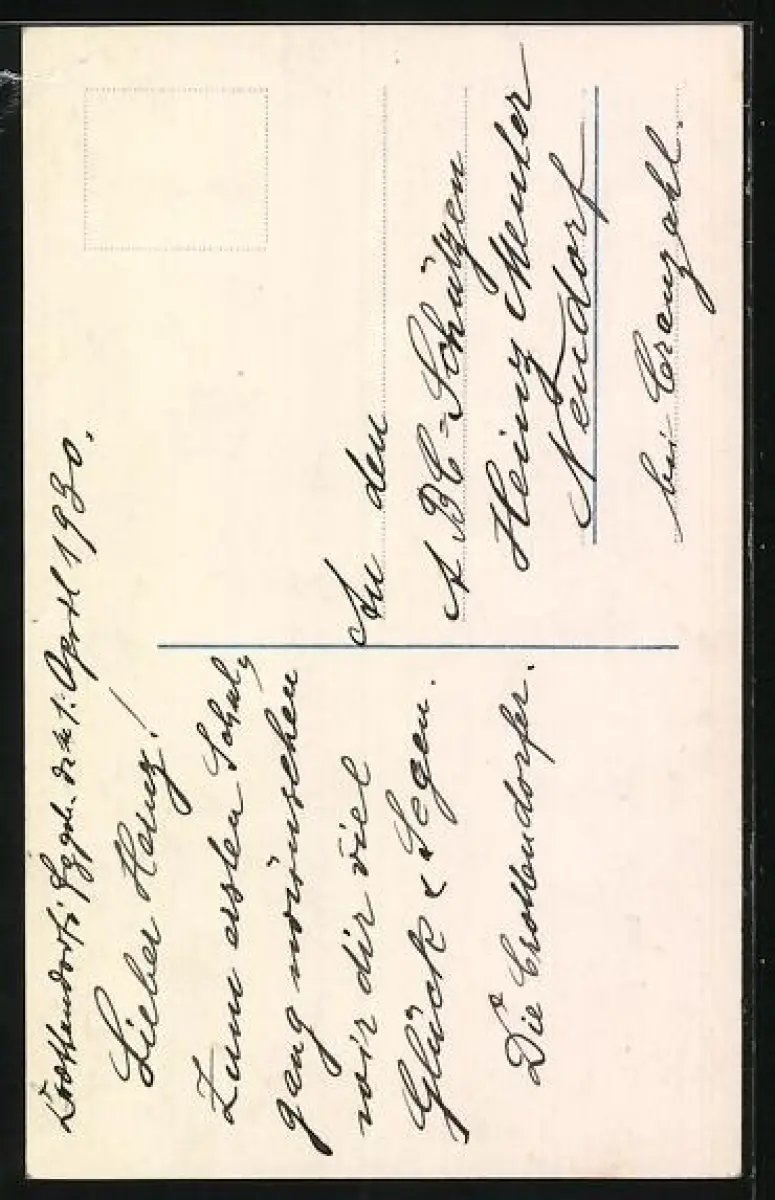 Crottendorf i. Erzgeb. den 1. April 1930.
Lieber Heinz!
Zum ersten Schul-
gang wünschen
wir dir viel
Glück & Segen.
Die Crottendorfer.
An den
ABC-Schützen
Heinz Meuler
Neudorf
bei Cranzahl.